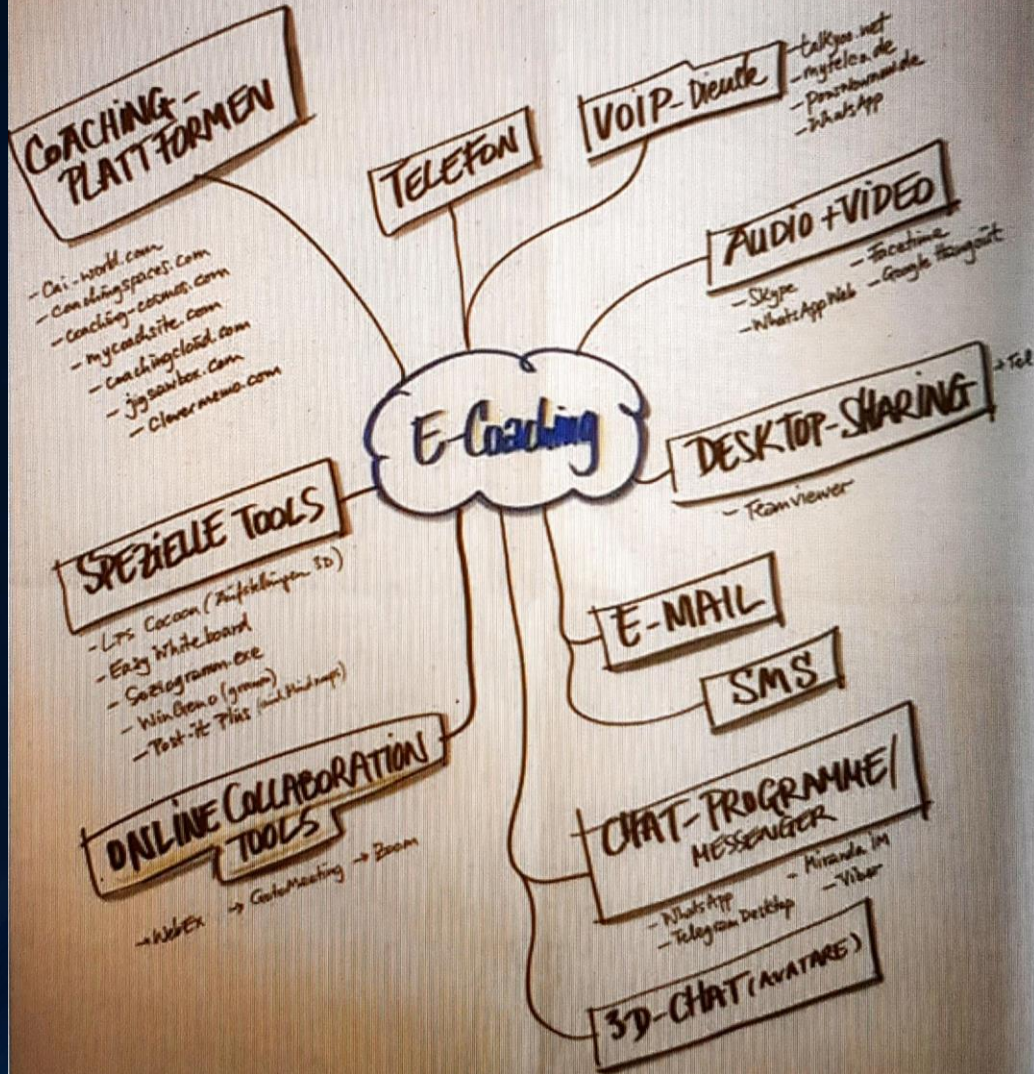 COACHING-
PLATTFORMEN
- Cai-world.com
- coachingspaces.com
- coaching-cosmos.com
- mycoachsite.com
- coachingcloud.com
- jigsawbox.com
- Clevermemo.com
TELEFON
VOIP-Dienste
- talkyoo.net
- mytelco.de
- WhatsApp
AUDIO + VIDEO
- Skype
- WhatsAppWeb
- Facetime
- Google Hangout
E-Coaching
DESKTOP-SHARING
- Teamviewer
SPEZIELLE TOOLS
- LPS Cocoon (Aufstellungen 3D)
- Eazy Whiteboard
- Soziogramm.exe
- WinGeno
- Post-it Plus
E-MAIL
SMS
ONLINE COLLABORATION
TOOLS
→ WebEx → GotoMeeting → Zoom
CHAT-PROGRAMME/
MESSENGER
- WhatsApp
- Telegram Desktop
- Miranda IM
- Viber
3D-CHAT (AVATARE)